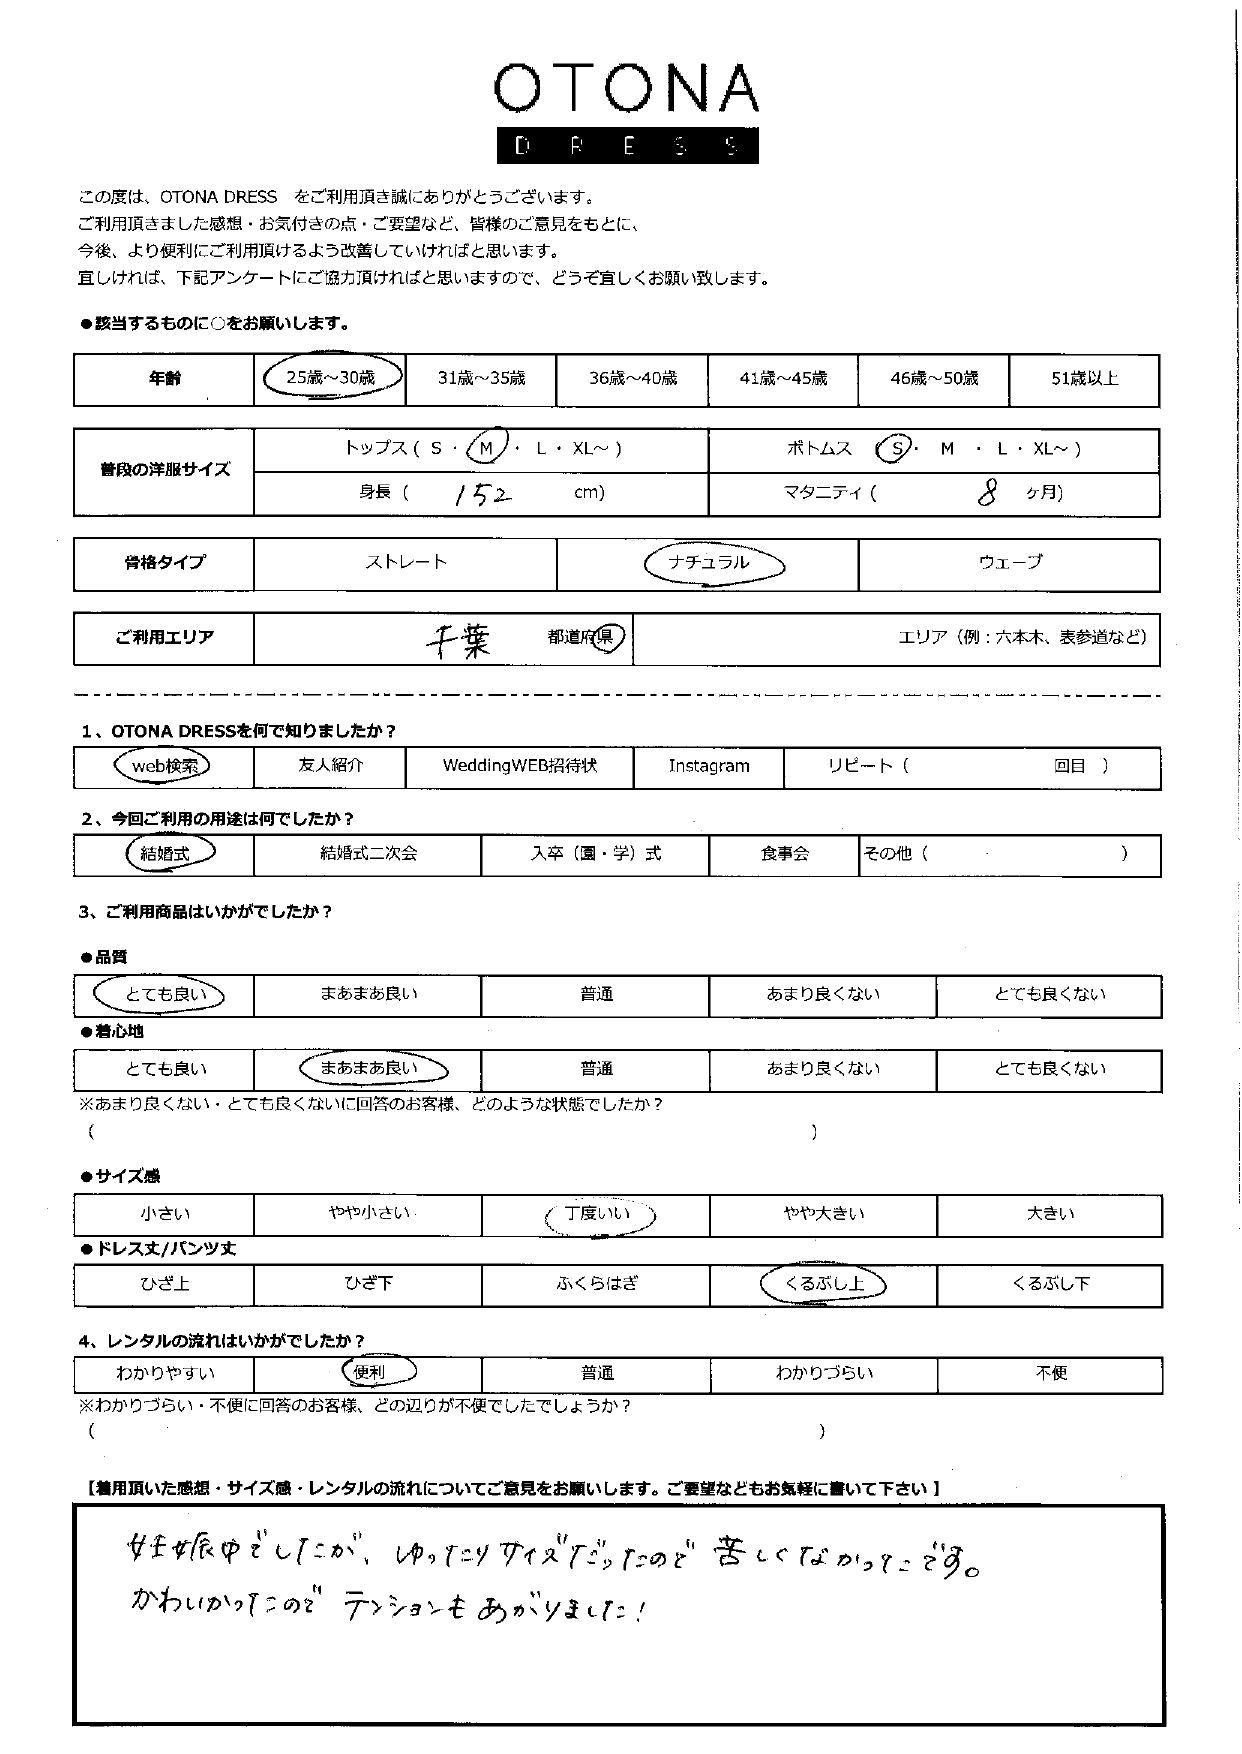 OTONA
DRESS
この度は、OTONA DRESS　をご利用頂き誠にありがとうございます。
ご利用頂きました感想・お気付きの点・ご要望など、皆様のご意見をもとに、
今後、より便利にご利用頂けるよう改善していければと思います。
宜しければ、下記アンケートにご協力頂ければと思いますので、どうぞ宜しくお願い致します。
●該当するものに○をお願いします。
年齢 25歳～30歳 31歳～35歳 36歳～40歳 41歳～45歳 46歳～50歳 51歳以上
普段の洋服サイズ
トップス ( S ・ M ・ L ・ XL～ ) ボトムス ( S ・ M ・ L ・ XL～ )
身長 ( 152 cm) マタニティ ( 8 ヶ月)
骨格タイプ ストレート ナチュラル ウェーブ
ご利用エリア 千葉 都道府県 エリア（例：六本木、表参道など）
1、OTONA DRESSを何で知りましたか？
web検索 友人紹介 WeddingWEB招待状 Instagram リピート（ 回目 ）
2、今回ご利用の用途は何でしたか？
結婚式 結婚式二次会 入卒（園・学）式 食事会 その他（ ）
3、ご利用商品はいかがでしたか？
●品質
とても良い まあまあ良い 普通 あまり良くない とても良くない
●着心地
とても良い まあまあ良い 普通 あまり良くない とても良くない
※あまり良くない・とても良くないに回答のお客様、どのような状態でしたか？
（ ）
●サイズ感
小さい やや小さい 丁度いい やや大きい 大きい
●ドレス丈/パンツ丈
ひざ上 ひざ下 ふくらはぎ くるぶし上 くるぶし下
4、レンタルの流れはいかがでしたか？
わかりやすい 便利 普通 わかりづらい 不便
※わかりづらい・不便に回答のお客様、どの辺りが不便でしたでしょうか？
（ ）
【着用頂いた感想・サイズ感・レンタルの流れについてご意見をお願いします。ご要望などもお気軽に書いて下さい】
妊娠中でしたが、ゆったりサイズだったので苦しくなかったです。
かわいかったのでテンションもあがりました！